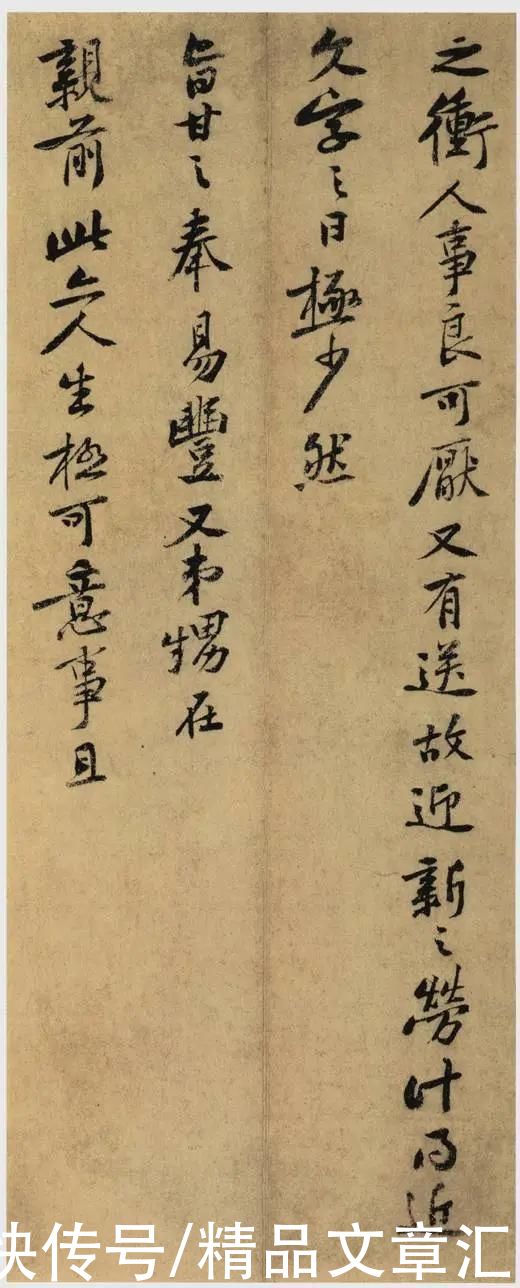 之衝人事良可厭又有送故迎新之勞計得近
文字之日極少然
旨甘之奉易豐又弟甥在
親前此亦人生極可意事且
快传号/精品文章汇